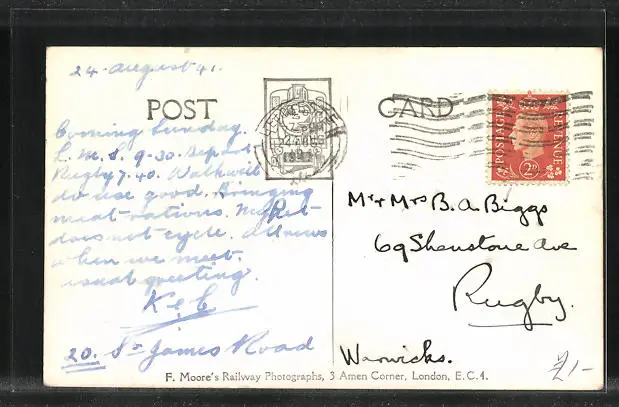 24 August 41.
POST CARD
Coming Sunday.
L.M.S. 9-30. Dep at
Rugby 7.40. Walk will
do use good. Bringing
meat rations. My Pet
does not cycle. All news
when we meet.
usual greeting.
K & C
20. St James Road
POSTAGE REVENUE
2D
Mr & Mrs B. A. Biggs
69 Shenstone Ave
Rugby.
Warwicks.
£1-
F. Moore's Railway Photographs, 3 Amen Corner, London, E.C.4.